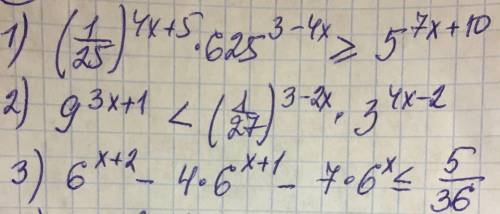 1) (1/25)^{4x+5} · 625^{3-4x} ≥ 5^{7x+10}
2) 9^{3x+1} < (1/27)^{3-2x} · 3^{4x-2}
3) 6^{x+2} - 4·6^{x+1} - 7·6^{x} ≤ 5/36